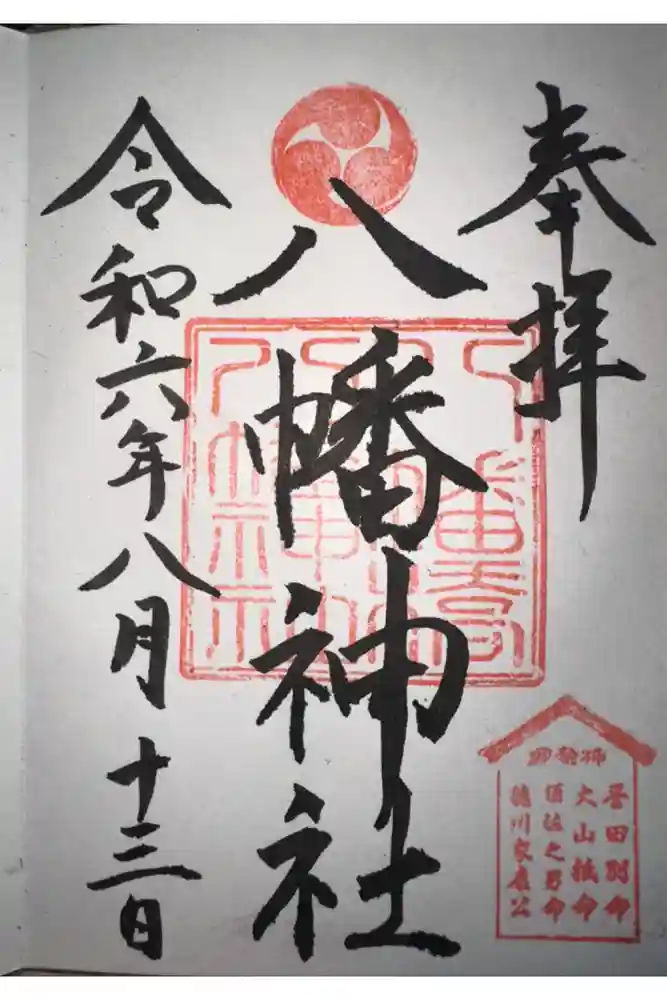 奉拝
八幡神社
令和六年八月十三日
御祭神
誉田別命
大山祗命
須佐之男命
徳川家康公